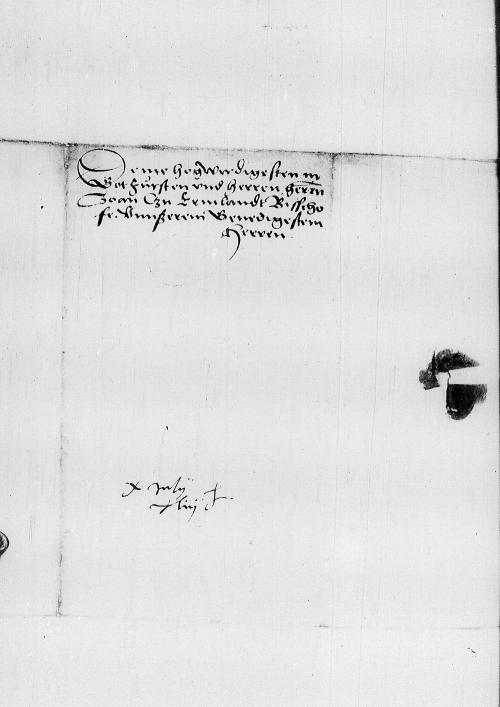 Deme hogwirdigesten in
Got Fursten vnd herren herrn
Joan Czu Ermlandt Bisscho
fe Vnnßerem Genedigestem
Herren
x July
xliij